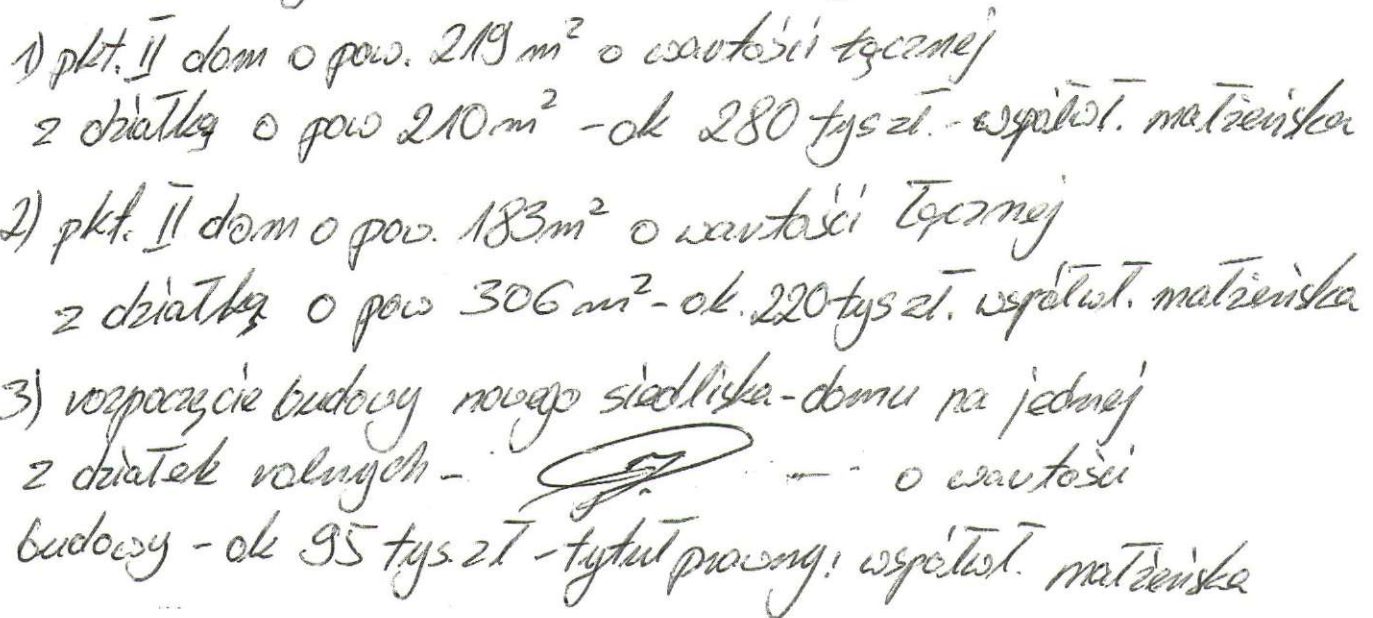 1) pkt. II dom o pow. 219 m² o wartości łącznej
z działką o pow 210 m² - ok 280 tys zł. - współwł. małżeńska
2) pkt. II dom o pow. 183 m² o wartości łącznej
z działką o pow 306 m² - ok. 220 tys zł. współwł. małżeńska
3) rozpoczęcie budowy nowego siedliska - domu na jednej
z działek rolnych - o wartości
budowy - ok 95 tys. zł - tytuł prawny: współwł. małżeńska